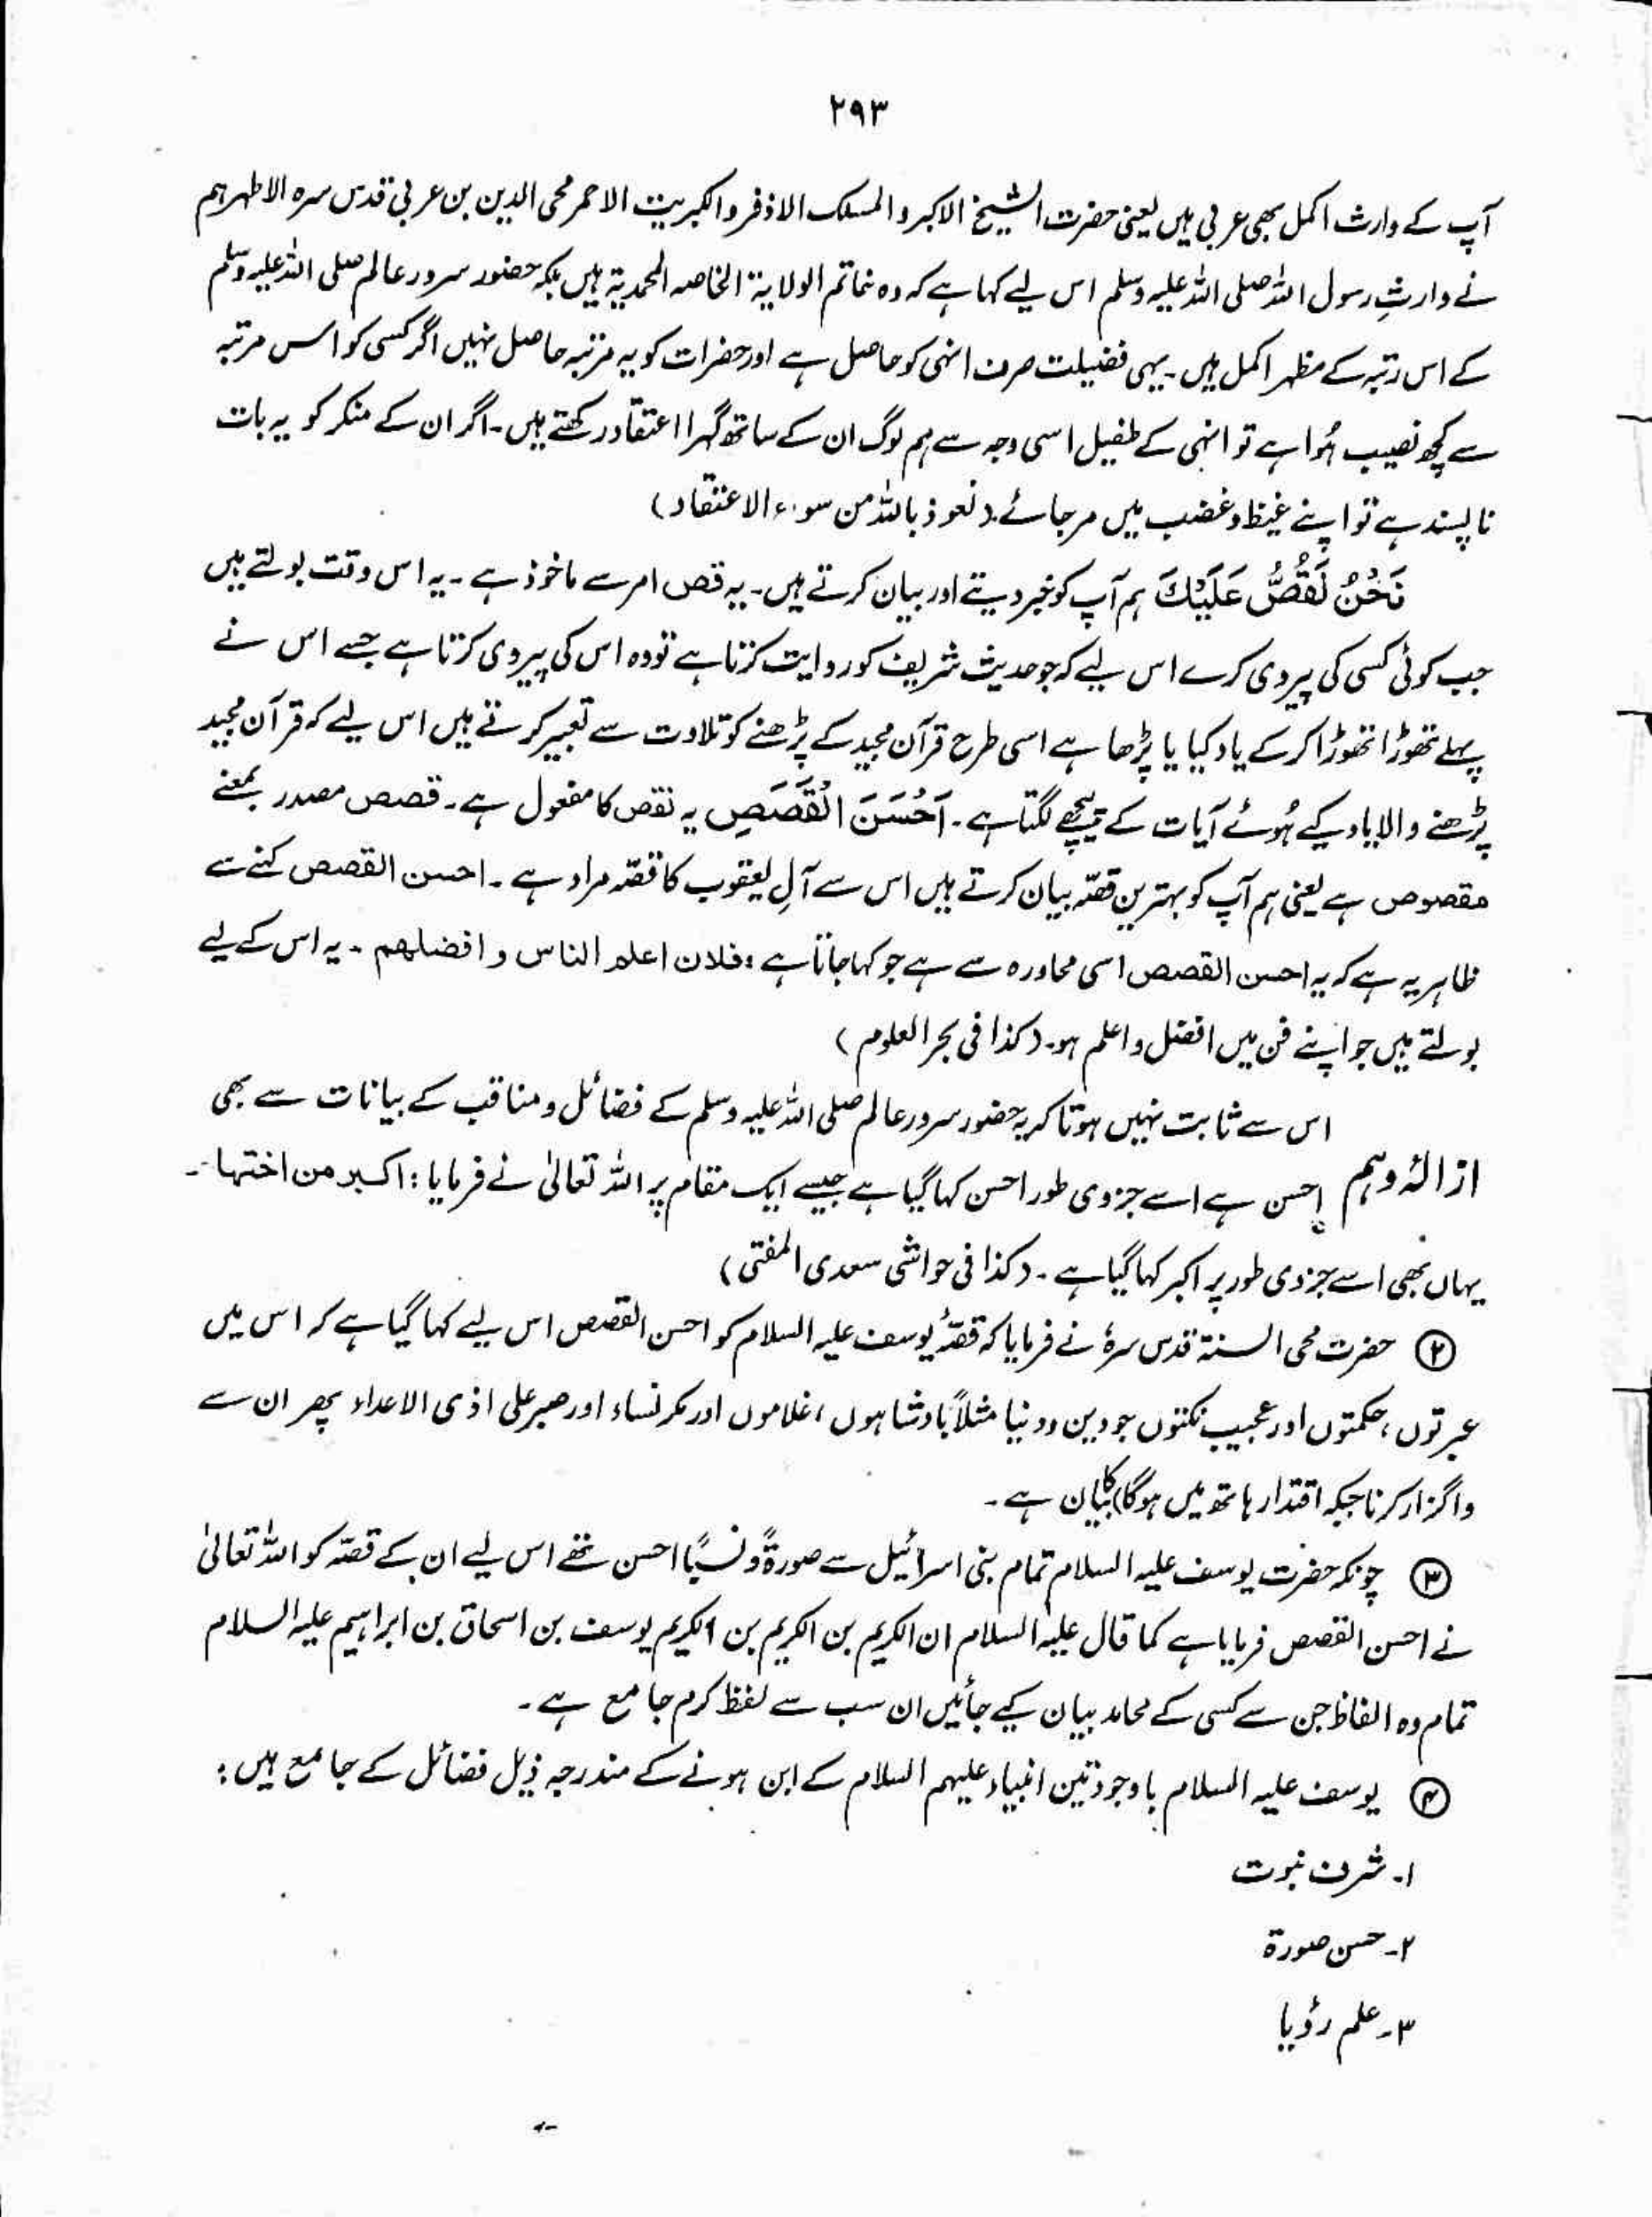 ۲۹۳
آپ کے وارث اکمل بھی عربی ہیں یعنی حضرت الشیخ الاکبر والمسک الاذفر والکبریت الاحمر محی الدین بن عربی قدس سرہ الاطہر ہم
نے وارثِ رسول اللہ صلی اللہ علیہ وسلم اس لیے کہا ہے کہ وہ خاتم الولایۃ الخاصہ المحمدیۃ ہیں بلکہ حضور سرور عالم صلی اللہ علیہ وسلم
کے اس رتبہ کے مظہر اکمل ہیں۔ یہی فضیلت صرف انہی کو حاصل ہے اور حضرات کو یہ مرتبہ حاصل نہیں اگر کسی کو اس مرتبہ
سے کچھ نصیب ہُوا ہے تو انہی کے طفیل اسی وجہ سے ہم لوگ ان کے ساتھ گہرا اعتقاد رکھتے ہیں۔ اگر ان کے منکر کو یہ بات
ناپسند ہے تو اپنے غیظ و غضب میں مر جائے۔ (نعوذ باللہ من سوء الاعتقاد)
نَحْنُ نَقُصُّ عَلَیْکَ ہم آپ کو خبر دیتے اور بیان کرتے ہیں۔ یہ قص امر سے ماخوذ ہے۔ یہ اس وقت بولتے ہیں
جب کوئی کسی کی پیروی کرے اس لیے کہ جو حدیث شریف کو روایت کرتا ہے تو وہ اس کی پیروی کرتا ہے جسے اس نے
پہلے تھوڑا تھوڑا کر کے یاد کیا یا پڑھا ہے اسی طرح قرآن مجید کے پڑھنے کو تلاوت سے تعبیر کرتے ہیں اس لیے کہ قرآن مجید
پڑھنے والا یاد کیے ہُوئے آیات کے پیچھے لگتا ہے۔ اَحْسَنَ الْقَصَصِ یہ نقص کا مفعول ہے۔ قصص مصدر بمعنے
مقصوص ہے یعنی ہم آپ کو بہترین قصّہ بیان کرتے ہیں اس سے آلِ یعقوب کا قصّہ مراد ہے۔ احسن القصص کہنے سے
ظاہر یہ ہے کہ یہ احسن القصص اسی محاورہ سے ہے جو کہا جاتا ہے : فلان اعلم الناس و افضلهم ۔ یہ اس کے لیے
بولتے ہیں جو اپنے فن میں افضل و اعلم ہو۔ (کذا فی بحر العلوم)
اس سے ثابت نہیں ہوتا کہ یہ حضور سرور عالم صلی اللہ علیہ وسلم کے فضائل و مناقب کے بیانات سے بھی
ازالۂ وہم احسن ہے اسے جزوی طور احسن کہا گیا ہے جیسے ایک مقام پر اللہ تعالیٰ نے فرمایا : اکبر من اختها ۔
یہاں بھی اسے جزوی طور پر اکبر کہا گیا ہے ۔ (کذا فی حواشی سعدی المفتی)
② حضرت محی السنۃ قدس سرہٗ نے فرمایا کہ قصّۂ یوسف علیہ السلام کو احسن القصص اس لیے کہا گیا ہے کہ اس میں
عبرتوں ، حکمتوں اور عجیب نکتوں جو دین و دنیا مثلاً بادشاہوں ، غلاموں اور مکر نساء اور صبر علی اذی الاعداء پھر ان سے
واگزار کرنا جبکہ اقتدار ہاتھ میں ہو گا کا بیان ہے ۔
③ چونکہ حضرت یوسف علیہ السلام تمام بنی اسرائیل سے صورۃً و نسبًا احسن تھے اس لیے ان کے قصّہ کو اللہ تعالیٰ
نے احسن القصص فرمایا ہے کما قال علیہ السلام ان الکریم بن الکریم بن الکریم یوسف بن اسحاق بن ابراہیم علیہ السلام
تمام وہ الفاظ جن سے کسی کے محامد بیان کیے جائیں ان سب سے لفظ کرم جامع ہے ۔
④ یوسف علیہ السلام باوجود تین انبیاء علیہم السلام کے ابن ہونے کے مندرجہ ذیل فضائل کے جامع ہیں :
۱۔ شرف نبوت
۲۔ حسن صورۃ
۳۔ علم رؤیا